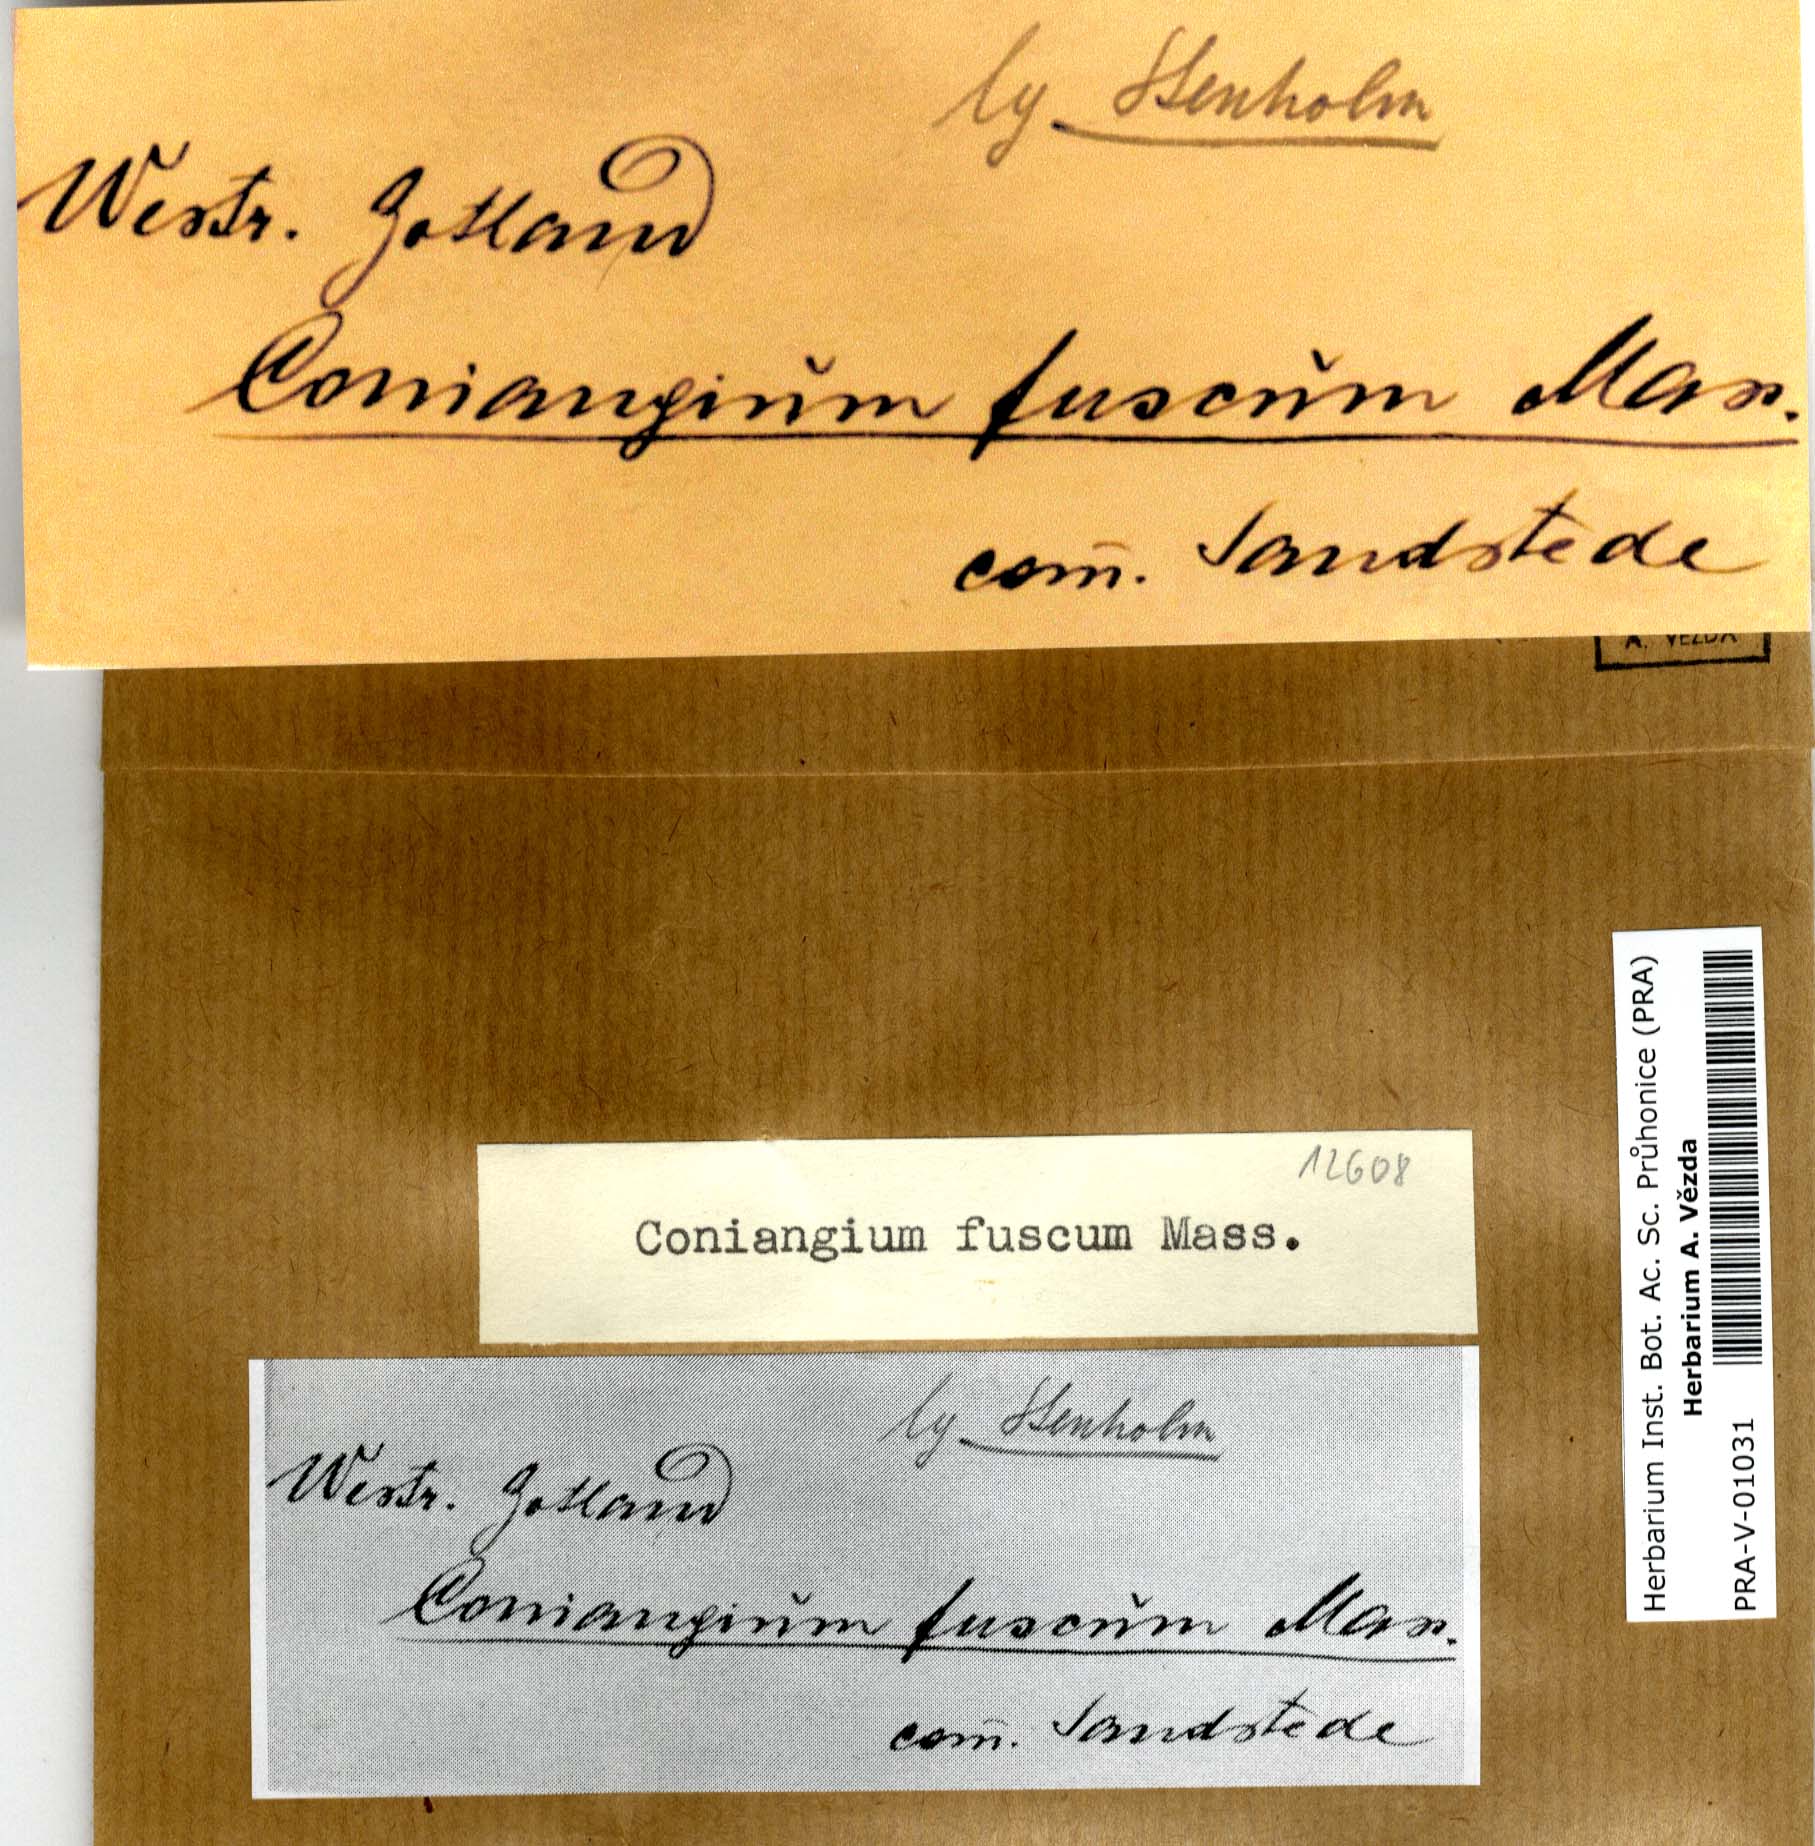 lg Stenholm
Westr. Gotland
Coniangium fuscum Mass.
com̄. Sandstede
A. VĚZDA
12608
Coniangium fuscum Mass.
lg Stenholm
Westr. Gotland
Coniangium fuscum Mass.
com̄. Sandstede
Herbarium Inst. Bot. Ac. Sc. Průhonice (PRA)
Herbarium A. Vězda
PRA-V-01031